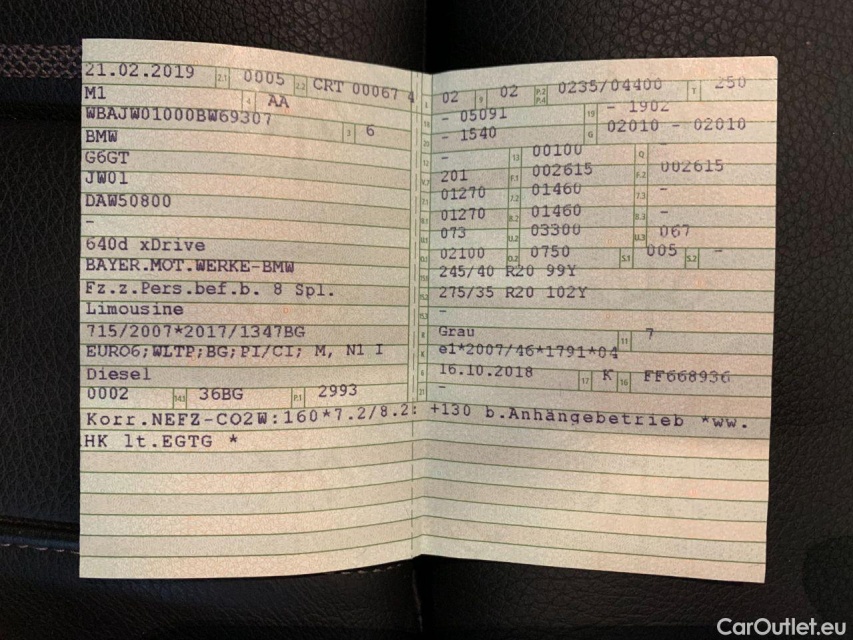 21.02.2019 2.1 0005 2.2 CRT 00067 4
M1 4 AA
WBAJW01000BW69307 3 6
BMW
G6GT
JW01
DAW50800
-
640d xDrive
BAYER.MOT.WERKE-BMW
Fz.z.Pers.bef.b. 8 Spl.
Limousine
715/2007*2017/1347BG
EURO6;WLTP;BG;PI/CI; M, N1 I
Diesel
0002 14.1 36BG P.1 2993
02 9 02 P.2 P.4 0235/04400 T 250
- 05091 19 - 1902
- 1540 G 02010 - 02010
- 13 00100 Q -
201 F.1 002615 F.2 002615
01270 7.2 01460 7.3 -
01270 8.2 01460 8.3 -
073 U.2 03300 U.3 067
02100 O.2 0750 S.1 005 S.2 -
245/40 R20 99Y
275/35 R20 102Y
-
Grau 11 7
e1*2007/46*1791*04
16.10.2018 17 K 16 FF668936
-
Korr.NEFZ-CO2W:160*7.2/8.2: +130 b.Anhängebetrieb *ww.
HK lt.EGTG *
CarOutlet.eu